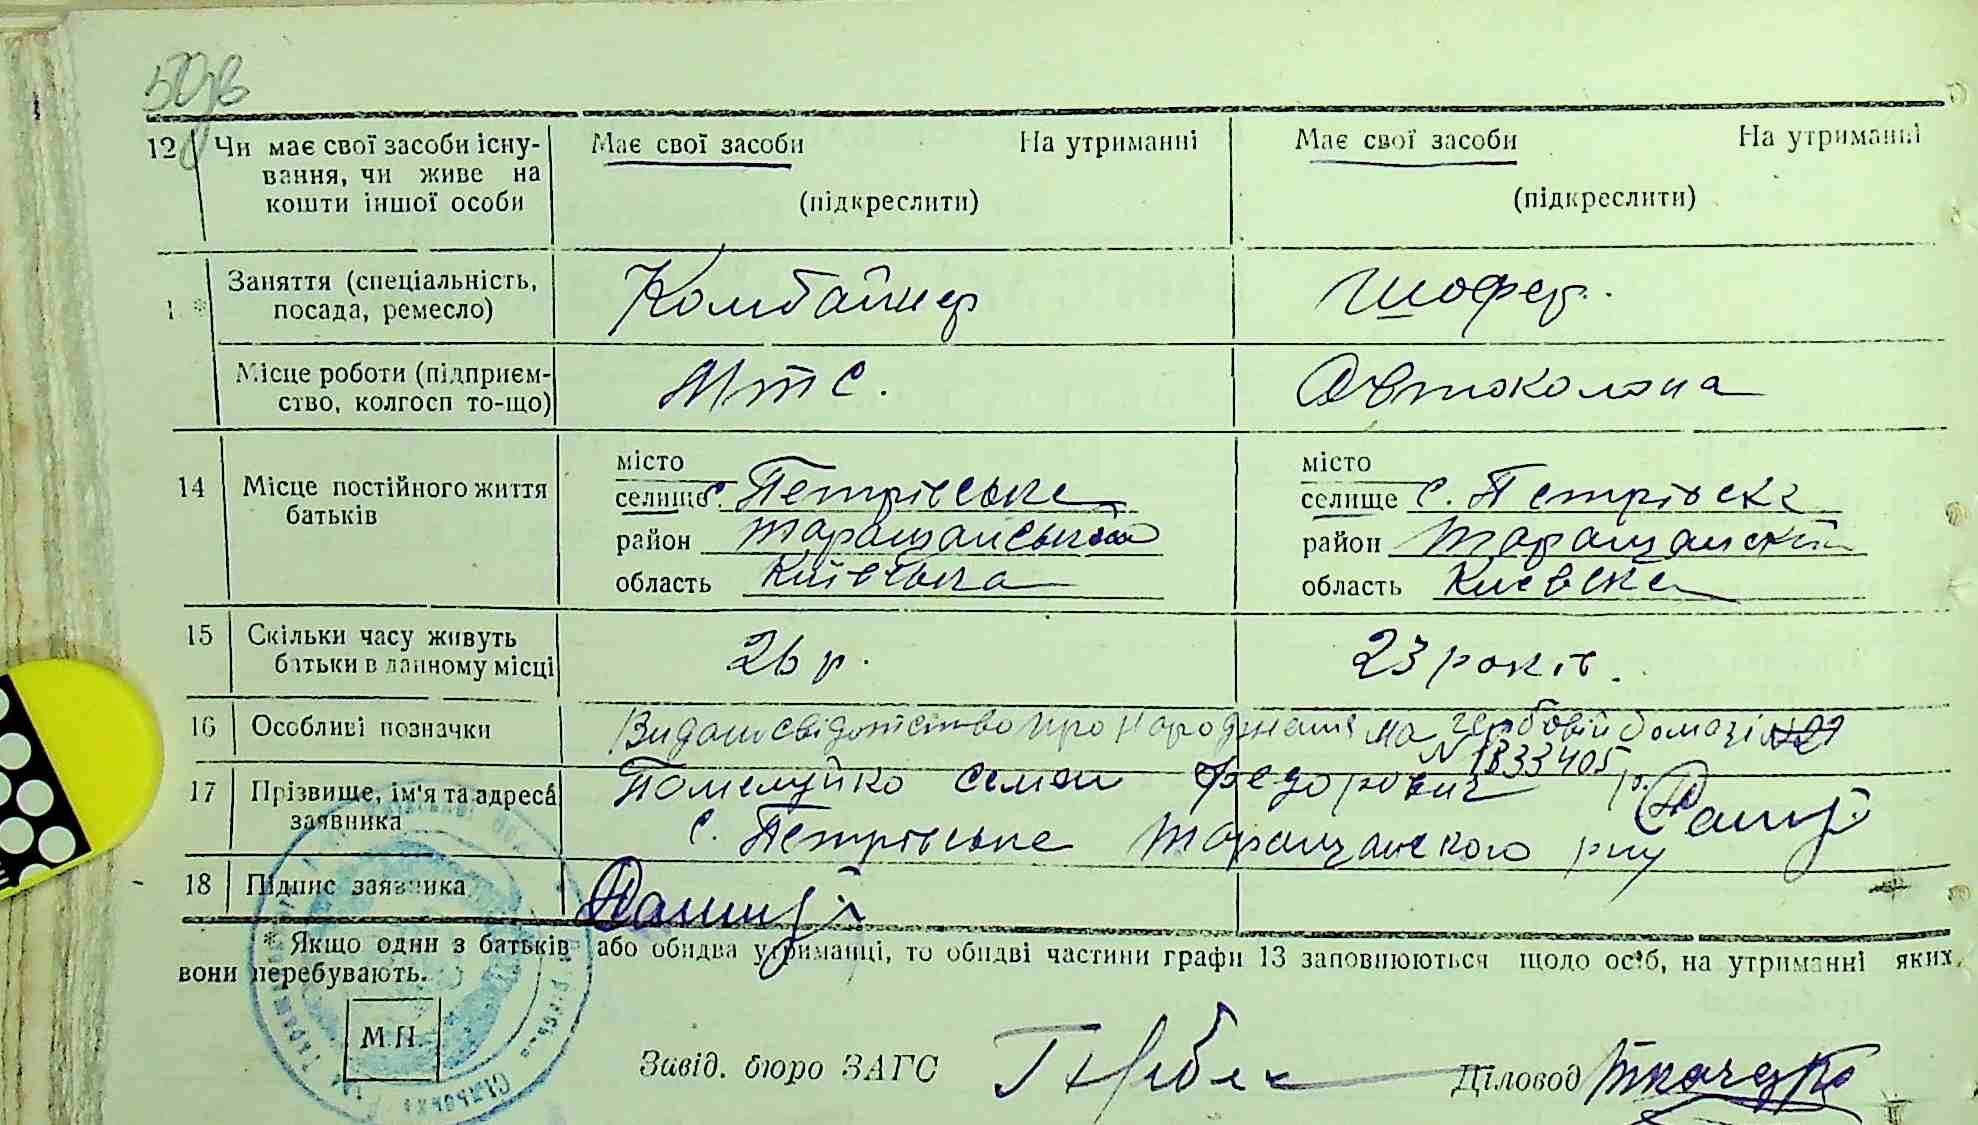 50зв
12 Чи має свої засоби існу- Має свої засоби На утриманні Має свої засоби На утриманні
вання, чи живе на
кошти іншої особи (підкреслити) (підкреслити)
Заняття (спеціальність, Комбайнер Шофер.
посада, ремесло)
Місце роботи (підприєм- МТС. Автоколона
ство, колгосп то-що)
місто місто
14 Місце постійного життя селище с. Петрівське селище с. Петрівске
батьків район Таращанський район Таращанский
область Київська область Киевска
15 Скільки часу живуть 26 р. 23 років.
батьки в данному місці
16 Особливі позначки Видано свідотство про народження на гербовій бомазі
N 1833405
17 Прізвище, ім'я та адреса Помелуйко Семен Федорович
заявника с. Петрівське Таращанского р-ну
18 Підпис заявника
* Якщо один з батьків або обидва утриманці, то обидві частини графи 13 заповнюються щодо осіб, на утриманні яких
вони перебувають.
М.П.
Завід. бюро ЗАГС Діловод